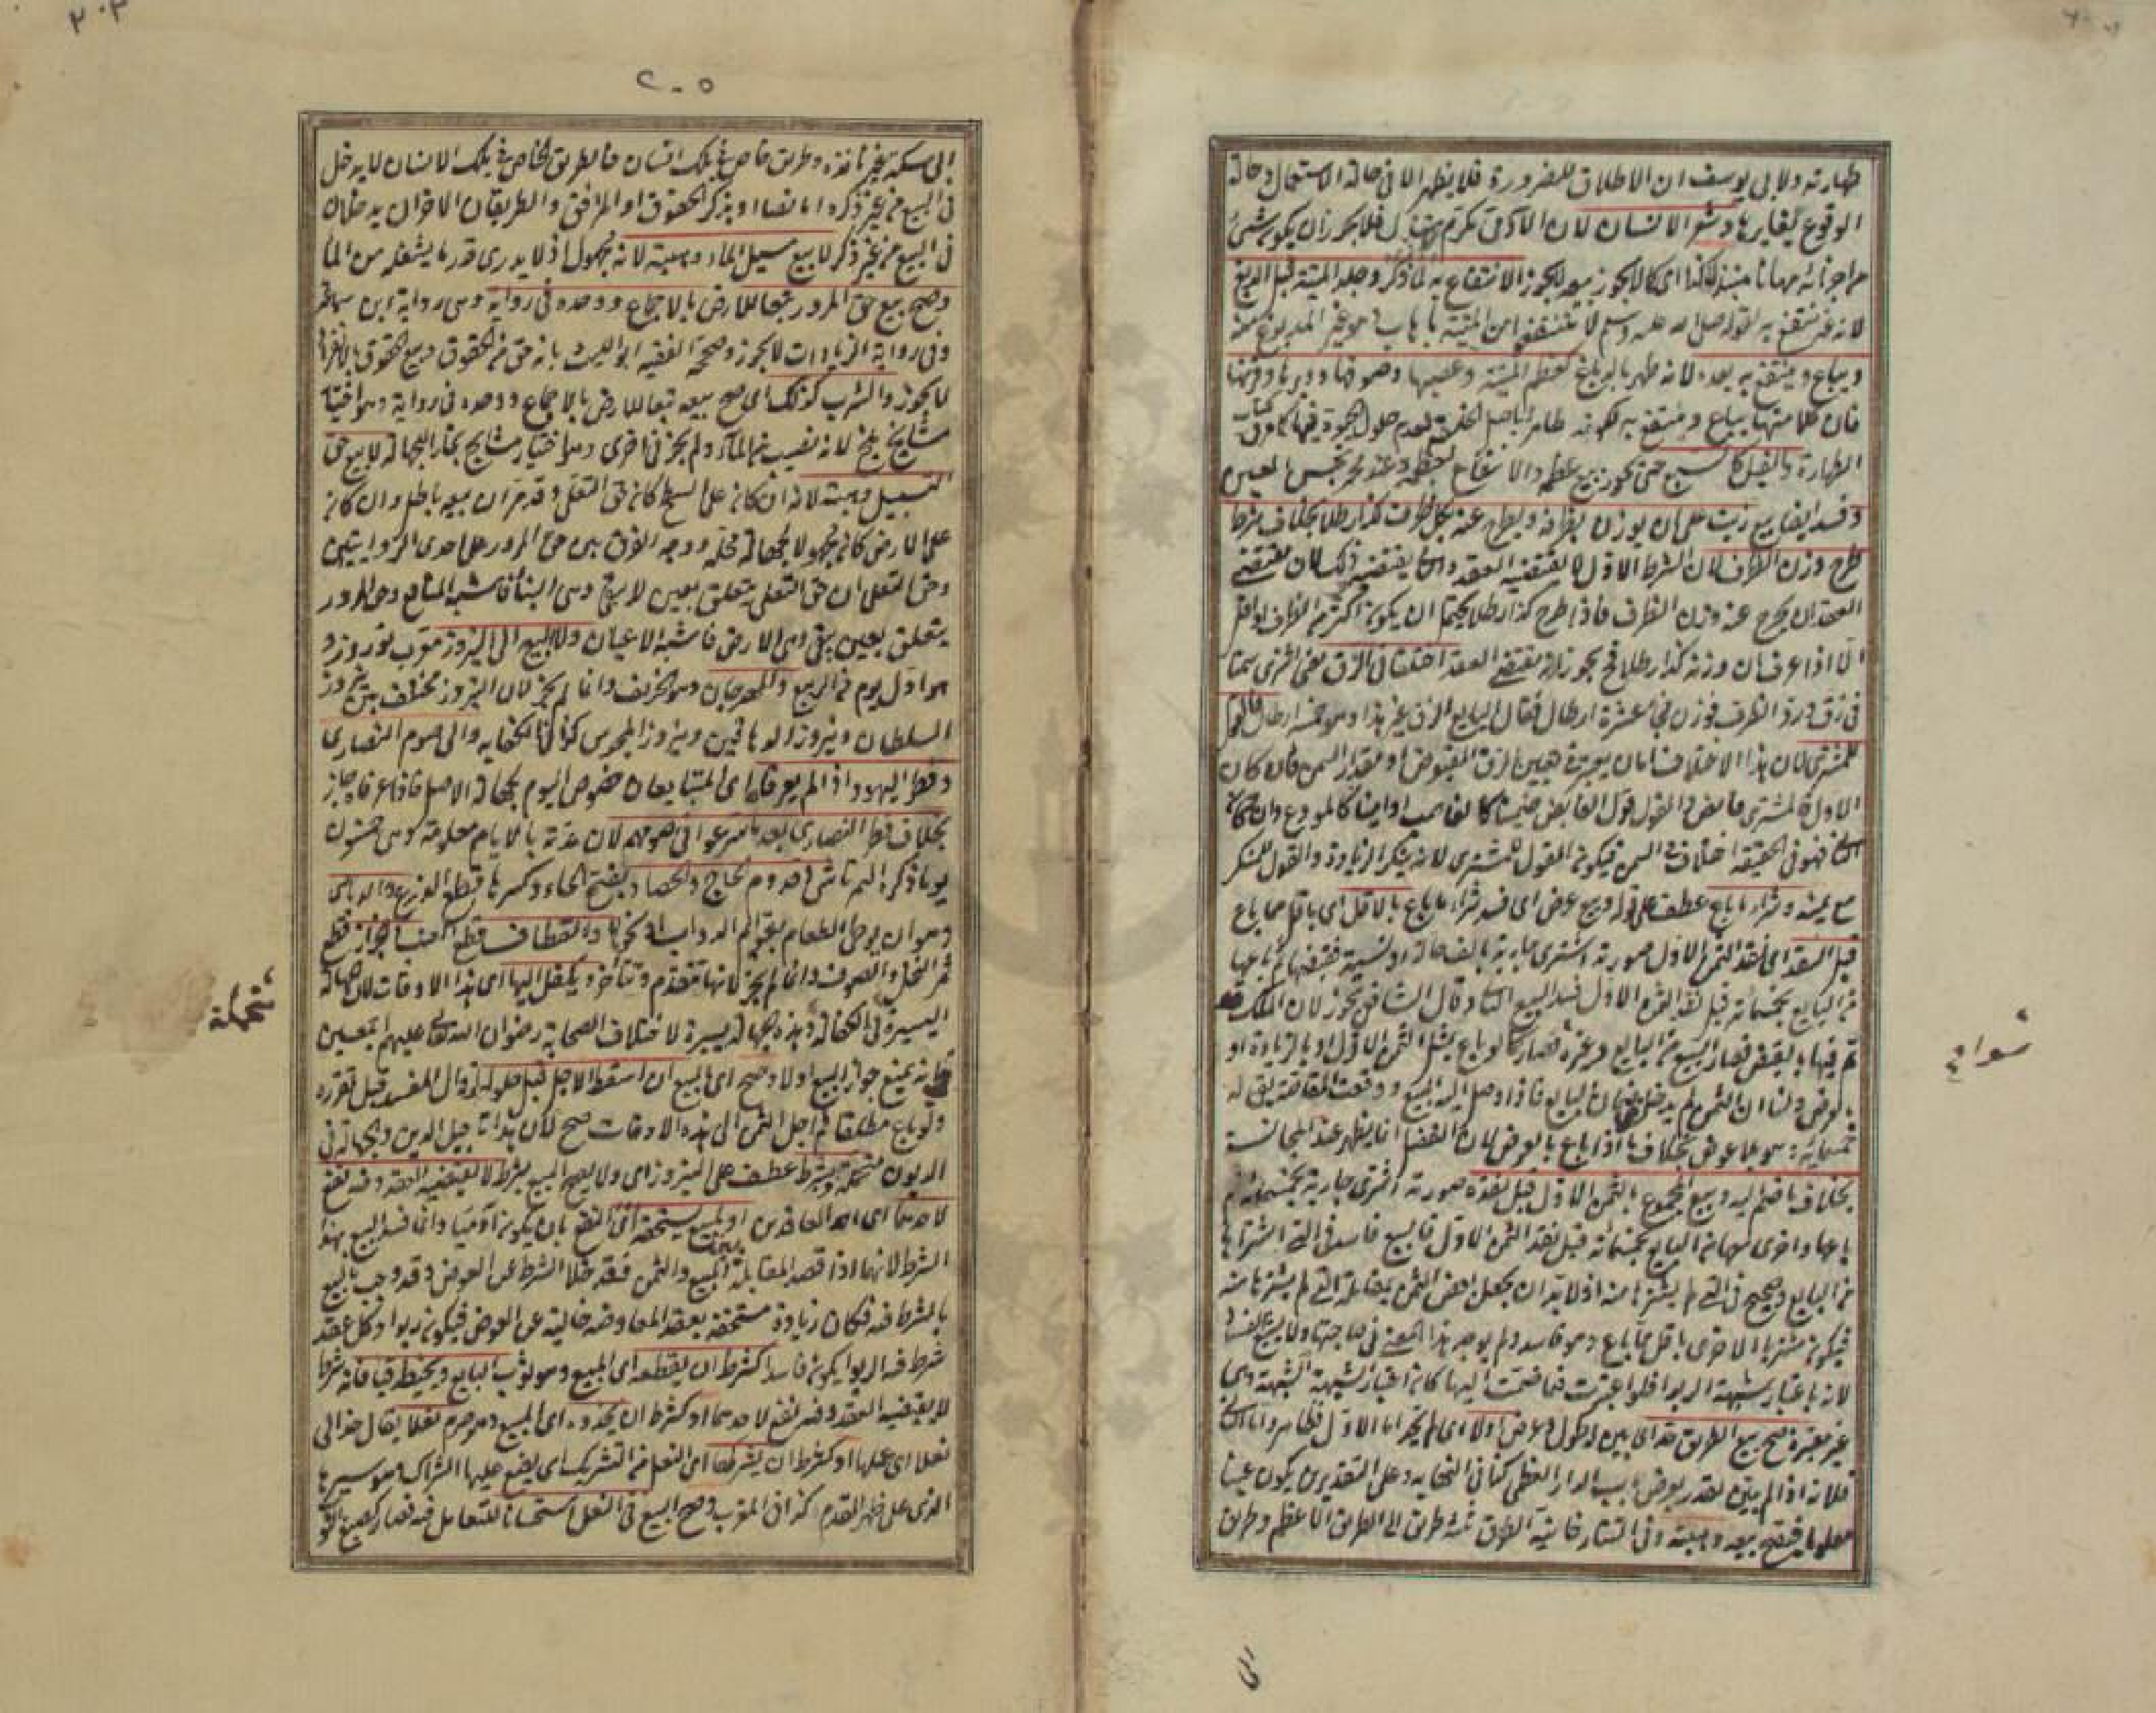 طهارته ولابى يوسف ان الاطلاق للضرورة فلا يظهر الا فى حالة الاستعمال وحالة
الوقوع يغايرها وشعر الانسان لان الآدمى مكرم فلا يجوز ان يكون شئ
من اجزائه مهانا مبتذلا كذا اى كما لا يجوز بيعه لا يجوز الانتفاع به لما ذكر وجلد الميتة قبل الدبغ
لانه غير منتفع به لقوله صلى الله عليه وسلم لا تنتفعوا من الميتة باهاب وهو غير المدبوغ منه
ويباع وينتفع به بعده لانه طهر بالدباغ كعظم الميتة وعصبها وصوفها ووبرها وقرنها
فان كلا منها يباع وينتفع به لكونه طاهرا باصل الخلقة لعدم حلول الحيوة فيها كما مر فى كتاب
الطهارة والفيل كالسبع حتى يجوز بيع عظمه والانتفاع بعظمه وعند محمد نجس العين
وفسد ايضا بيع زيت على ان يوزن بظرفه ويطرح عنه بكل ظرف كذا رطلا بخلاف شرط
طرح وزن الظرف لان الشرط الاول لا يقتضيه العقد والثانى يقتضيه وذلك لان مقتضى
العقد ان يطرح عنه وزن الظرف فاذا طرح كذا رطلا يحتمل ان يكون اكثر من الظرف او اقل
الا اذا عرف ان وزنه كذا رطلا فح يجوز لانه مقتضى العقد اختلفا فى الزق يعنى اشترى سمنا
فى زق ورد الظرف فوزن فجاء عشرة ارطال فقال البايع الزق غير هذا وهو خمسة ارطال فالقول
للمشترى لان هذا الاختلاف اما ان يعتبر فى تعيين الزق المقبوض او مقدار السمن فان كان
الاول فالمشترى قابض والقول قول القابض ضمينا كالغاصب او امينا كالمودع وان كان
الثانى فهو فى الحقيقة اختلاف فى السمن فيكون القول للمشترى لانه ينكر الزيادة والقول للمنكر
مع يمينه وشراء ما باع عطف على قوله وبيع عرض اى فسد شراء ما باع بالاقل اى باقل مما باع
قبل النقد اى نقد الثمن الاول صورته اشترى جارية بالف حالة او نسيئة فقبضها ثم باعها
من البايع بخمسمائة قبل نقد الثمن الاول فسد البيع الثانى وقال الشافعى يجوز لان الملك قد
تم فيها بالقبض فصار البيع من البايع ومن غيره سواء فصار كما لو باع بمثل الثمن الاول او بالزيادة او
بالعرض ولنا ان الثمن لم يدخل فى ضمان البايع فاذا وصل اليه المبيع ووقعت المقاصة بقى له
خمسمائة وهو بلا عوض بخلاف ما اذا باع بالعرض لان الفضل انما يظهر عند المجانسة
بخلاف ما ضم اليه وبيع المجموع بالثمن الاول قبل نقده صورته اشترى جارية بخمسمائة ثم
باعها واخرى معها من البايع بخمسمائة قبل نقد الثمن الاول فالبيع فاسد فى التى اشتراها
من البايع وصحيح فى التى لم يشترها منه اذ لا بد ان يجعل بعض الثمن بمقابلة التى لم يشترها منه
فيكون مشتريا الاخرى باقل مما باع وهو فاسد ولم يوجد هذا المعنى فى صاحبتها ولا يشيع الفساد
لانه باعتبار شبهة الربوا فلو اعتبرت فيما ضمت اليها كان اعتبار لشبهة الشبهة وهى
غير معتبرة صح بيع الطريق حد اى بين له طول وعرض او لا اى لم يحد اما الاول فظاهر واما الثانى
فلانه اذا لم يبين يقدر بعرض باب الدار العظمى كذا فى النهاية وعلى التقديرين يكون عينا
معلوما فيصح بيعه وهبته وفى التتارخانية الطرق ثلثة طريق الى الطريق الاعظم وطريق
سواء صح
الى
٢٠٥
٢٠٣
الى سكة غير نافذة وطريق خاص فى ملك انسان فالطريق الخاص فى ملك الانسان لا يدخل
فى البيع من غير ذكره اما نصا او بذكر الحقوق او المرافق والطريقان الاخران يدخلان
فى البيع من غير ذكر لا بيع مسيل الماء وهبته لانه مجهول اذ لا يدرى قدر ما يشغله من الماء
وصح بيع حق المرور تبعا للارض بالاجماع ووحده فى رواية وهى رواية ابن سماعة
وفى رواية الزيادات لا يجوز وصححه الفقيه ابو الليث بانه حق من الحقوق وبيع الحقوق بالانفراد
لا يجوز والشرب كذلك اى صح بيعه تبعا للارض بالاجماع ووحده فى رواية وهو اختيار
مشايخ بلخ لانه نصيب من الماء ولم يجز فى اخرى وهو اختيار مشايخ بخارا للجهالة لا بيع حق
التسييل وهبته لانه ان كان على السطح كان حق التعلى وقد مر ان بيعه باطل وان كان
على الارض كان مجهولا لجهالة محله ووجه الفرق بين حق المرور على احدى الروايتين
وحق التعلى ان حق التعلى يتعلق بعين لا يبقى وهى البناء فاشبه المنافع وحق المرور
يتعلق بعين يبقى وهى الارض فاشبه الاعيان ولا البيع الى النيروز معرب نوروز و
هو اول يوم من الربيع والمهرجان وهو الخريف وانما لم يجز لان النيروز مختلف بين نيروز
السلطان ونيروز الدهاقين ونيروز المجوس كذا فى الكفاية والى صوم النصارى
وفطر اليهود اذا لم يعرفاه اى المتبايعان خصوص اليوم لجهالة الاصل فاذا عرفاه جاز
بخلاف فطر النصارى بعد ما شرعوا فى صومهم لان مدته بالايام معلومة وهى خمسون
يوما ذكره التمرتاشى وقدوم الحاج والحصاد بفتح الحاء وكسرها قطع الزرع والدياس
وهو ان يوطئ الطعام بقوائم الدواب او نحوها والقطاف قطع العنب والجزاز قطع
ثمر النخل والصوف وانما لم يجز لانها تتقدم وتتأخر ويكفل اليها اى هذه الاوقات لان جهالة
اليسيرة فى الكفالة وهذه جهالة يسيرة لاختلاف الصحابة رضوان الله تعالى عليهم اجمعين
فى انه يمنع جواز البيع او لا وصح اى البيع ان اسقط الاجل قبل حلوله لزوال المفسد قبل تقرره
ولو باع مطلقا ثم اجل الثمن الى هذه الاوقات صح لان هذا تاجيل الدين والجهالة فى
الديون متحملة وبشرط عطف على النيروز اى ولا يصح البيع بشرط لا يقتضيه العقد وفيه نفع
لاحدهما اى احد العاقدين او لمبيع يستحقه اى النفع بان يكون آدميا وانما فسد البيع بهذا
الشرط لانهما اذا قصدا المقابلة بين المبيع والثمن فقد خلا الشرط عن العوض وقد وجب بالبيع
بالشرط فيه فكان زيادة مستحقة بعقد المعاوضة خالية عن العوض فيكون ربوا وكل عقد
شرط فيه الربوا يكون فاسدا كشرط ان يقطعه اى المبيع وهو ثوب البايع ويخيطه قباء فانه شرط
لا يقتضيه العقد وفيه نفع لاحدهما او كشرط ان يحذوه اى المبيع وهو صرم نعلا يقال حذا لى
نعلا اى عملها او كشرط ان يشركها اى النعل من التشريك اى يضع عليها الشراك وهو سيرها
الذى على ظهر القدم كذا فى المغرب وصح البيع فى النعل استحسانا للتعامل فيه فصار كصبغ الثوب
متحملة